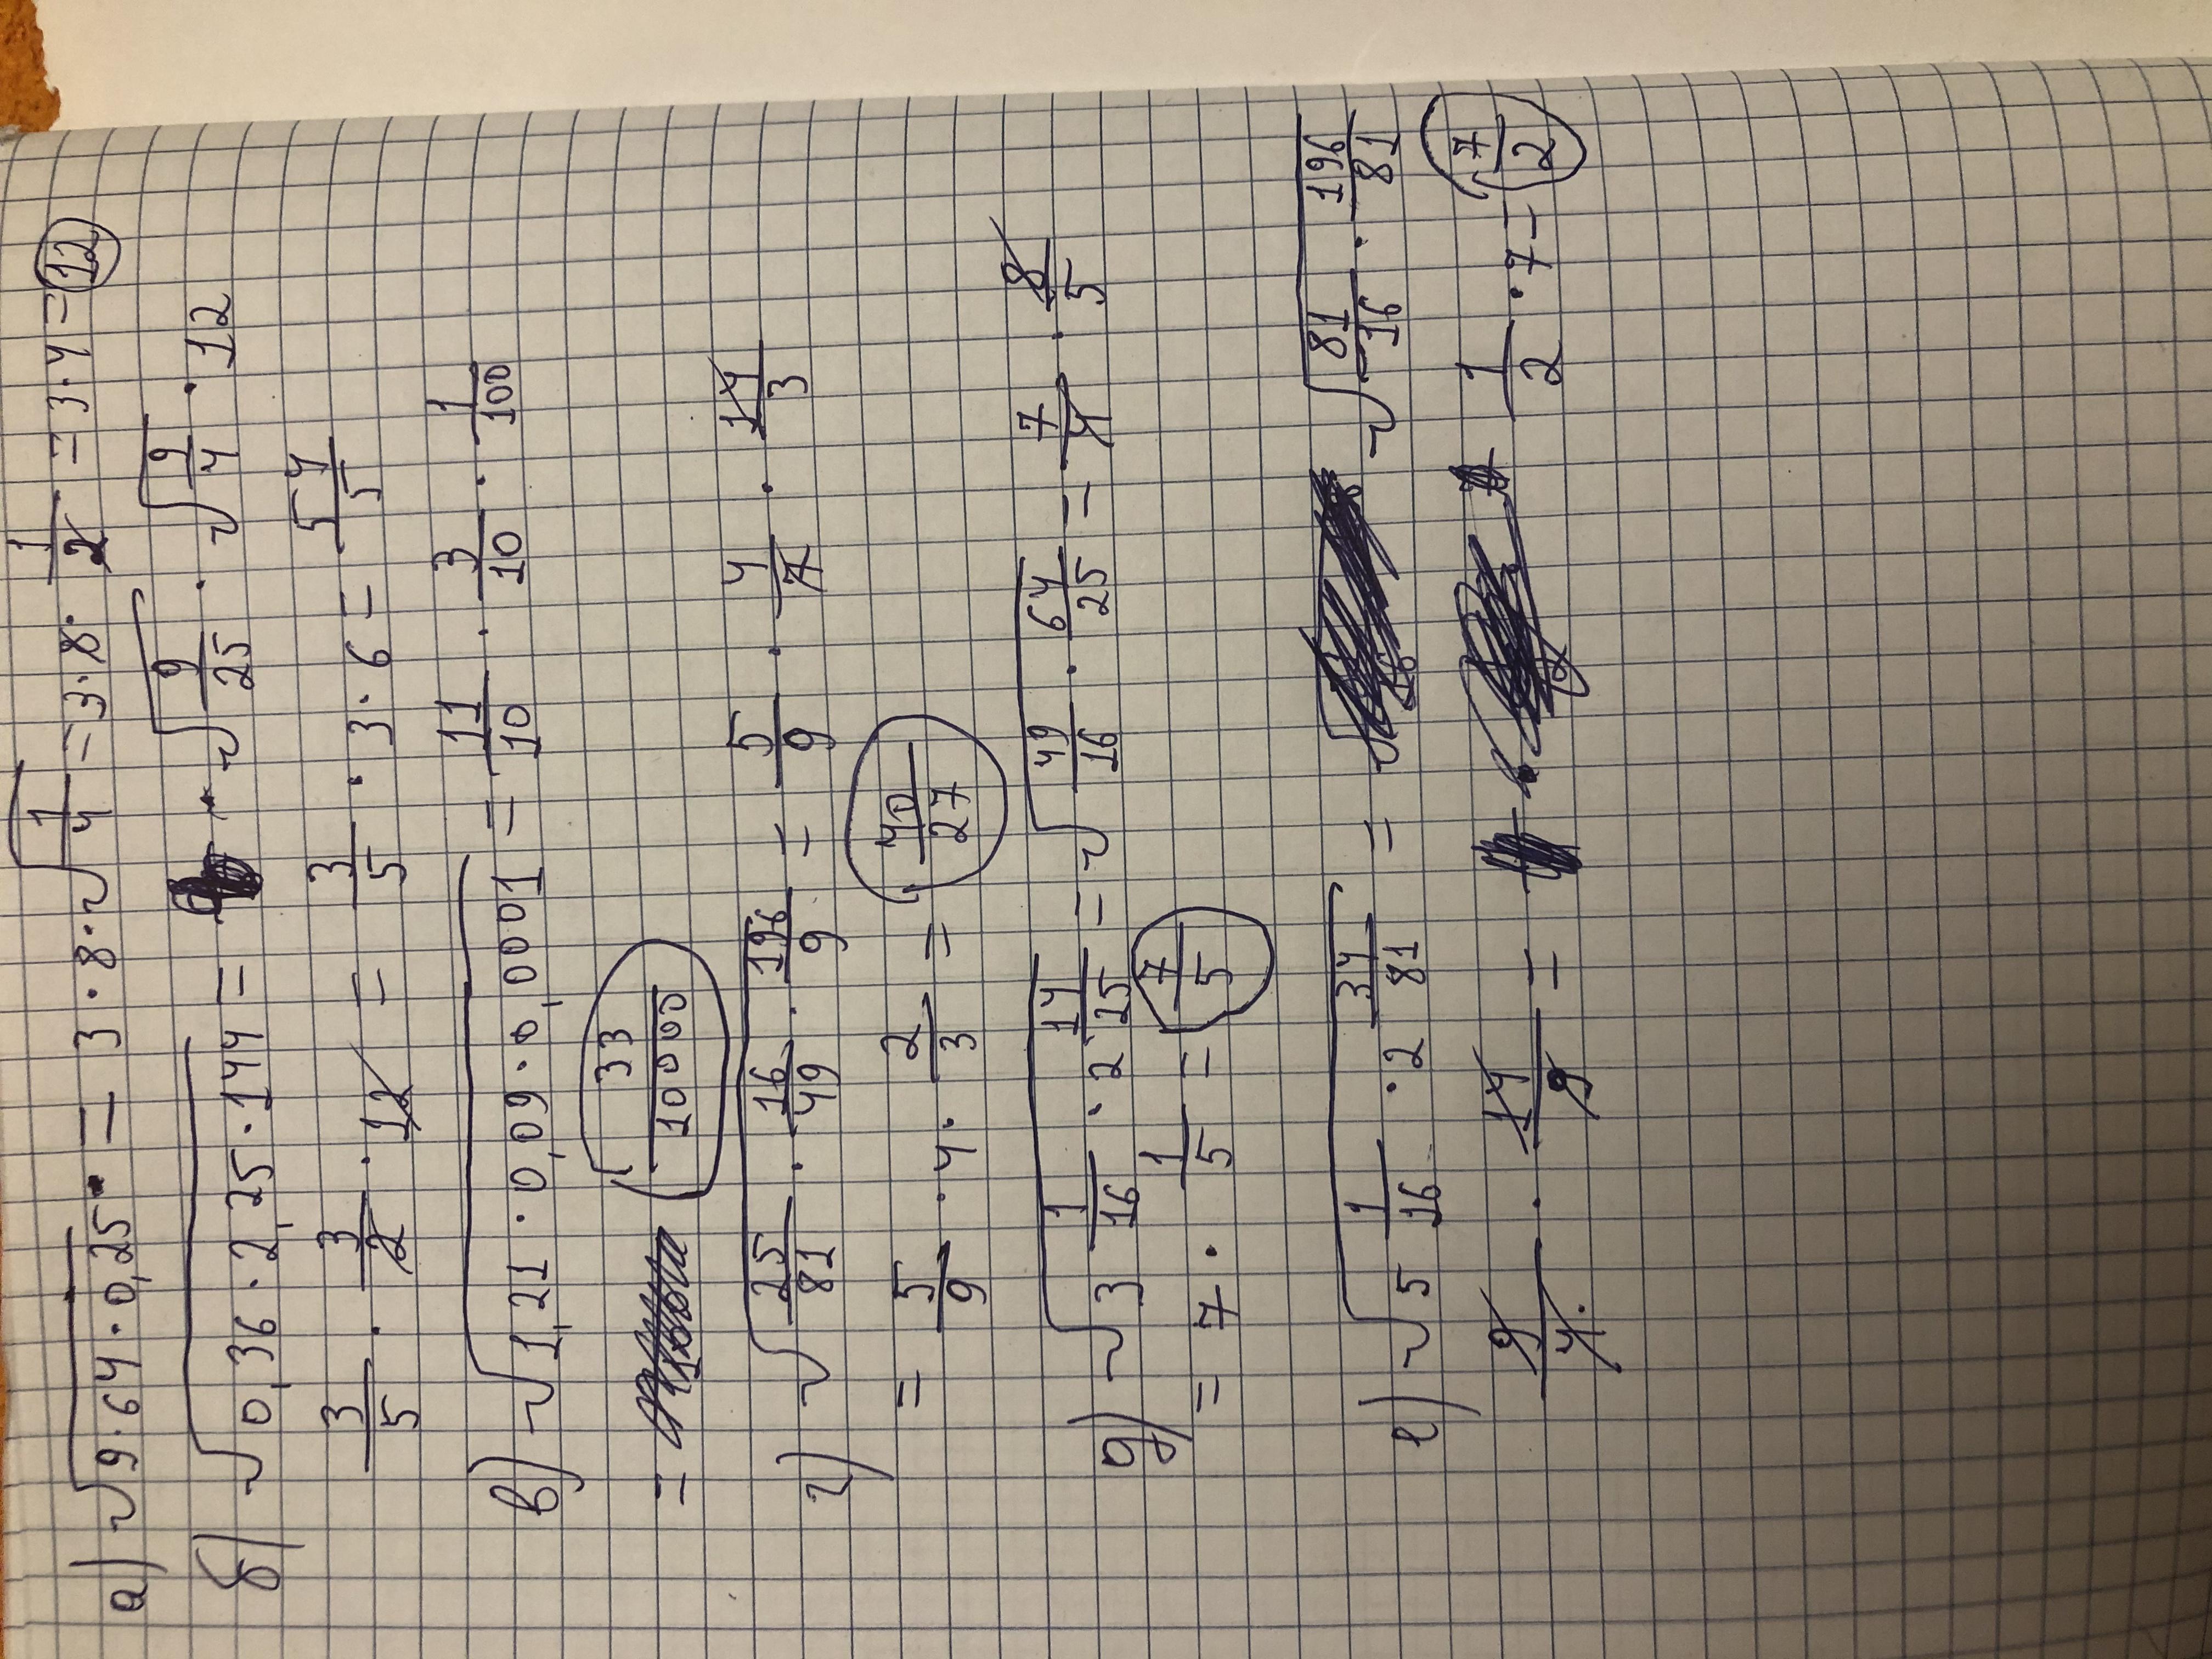 а) √9·64·0,25 = 3·8·√1/4 = 3·8·1/2 = 3·4 = 12
б) √0,36·2,25·144 = · √9/25 · √9/4 · 12
3/5 · 3/2 · 12 = 3/5 · 3·6 = 54/5
в) √1,21·0,09·0,0001 = 11/10 · 3/10 · 1/100
= 33/10000
г) √25/81 · 16/49 · 196/9 = 5/9 · 4/7 · 14/3
= 5/9 · 4 · 2/3 = 40/27
д) √3 1/16 · 2 14/25 = √49/16 · 64/25 = 7/4 · 8/5
= 7 · 1/5 = 7/5
е) √5 1/16 · 2 34/81 = √81/16 · 196/81
9/4 · 14/9 = 1/2 · 7 = 7/2